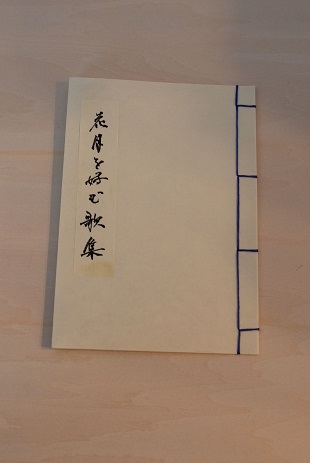 花月を好む歌集